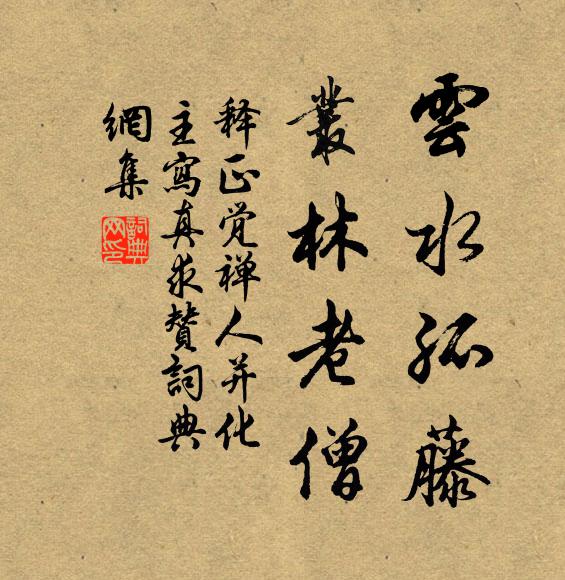 雲水孤藤
叢林老僧
释正觉禅人并化
主寫真求贊詞典
網集
詞典网印